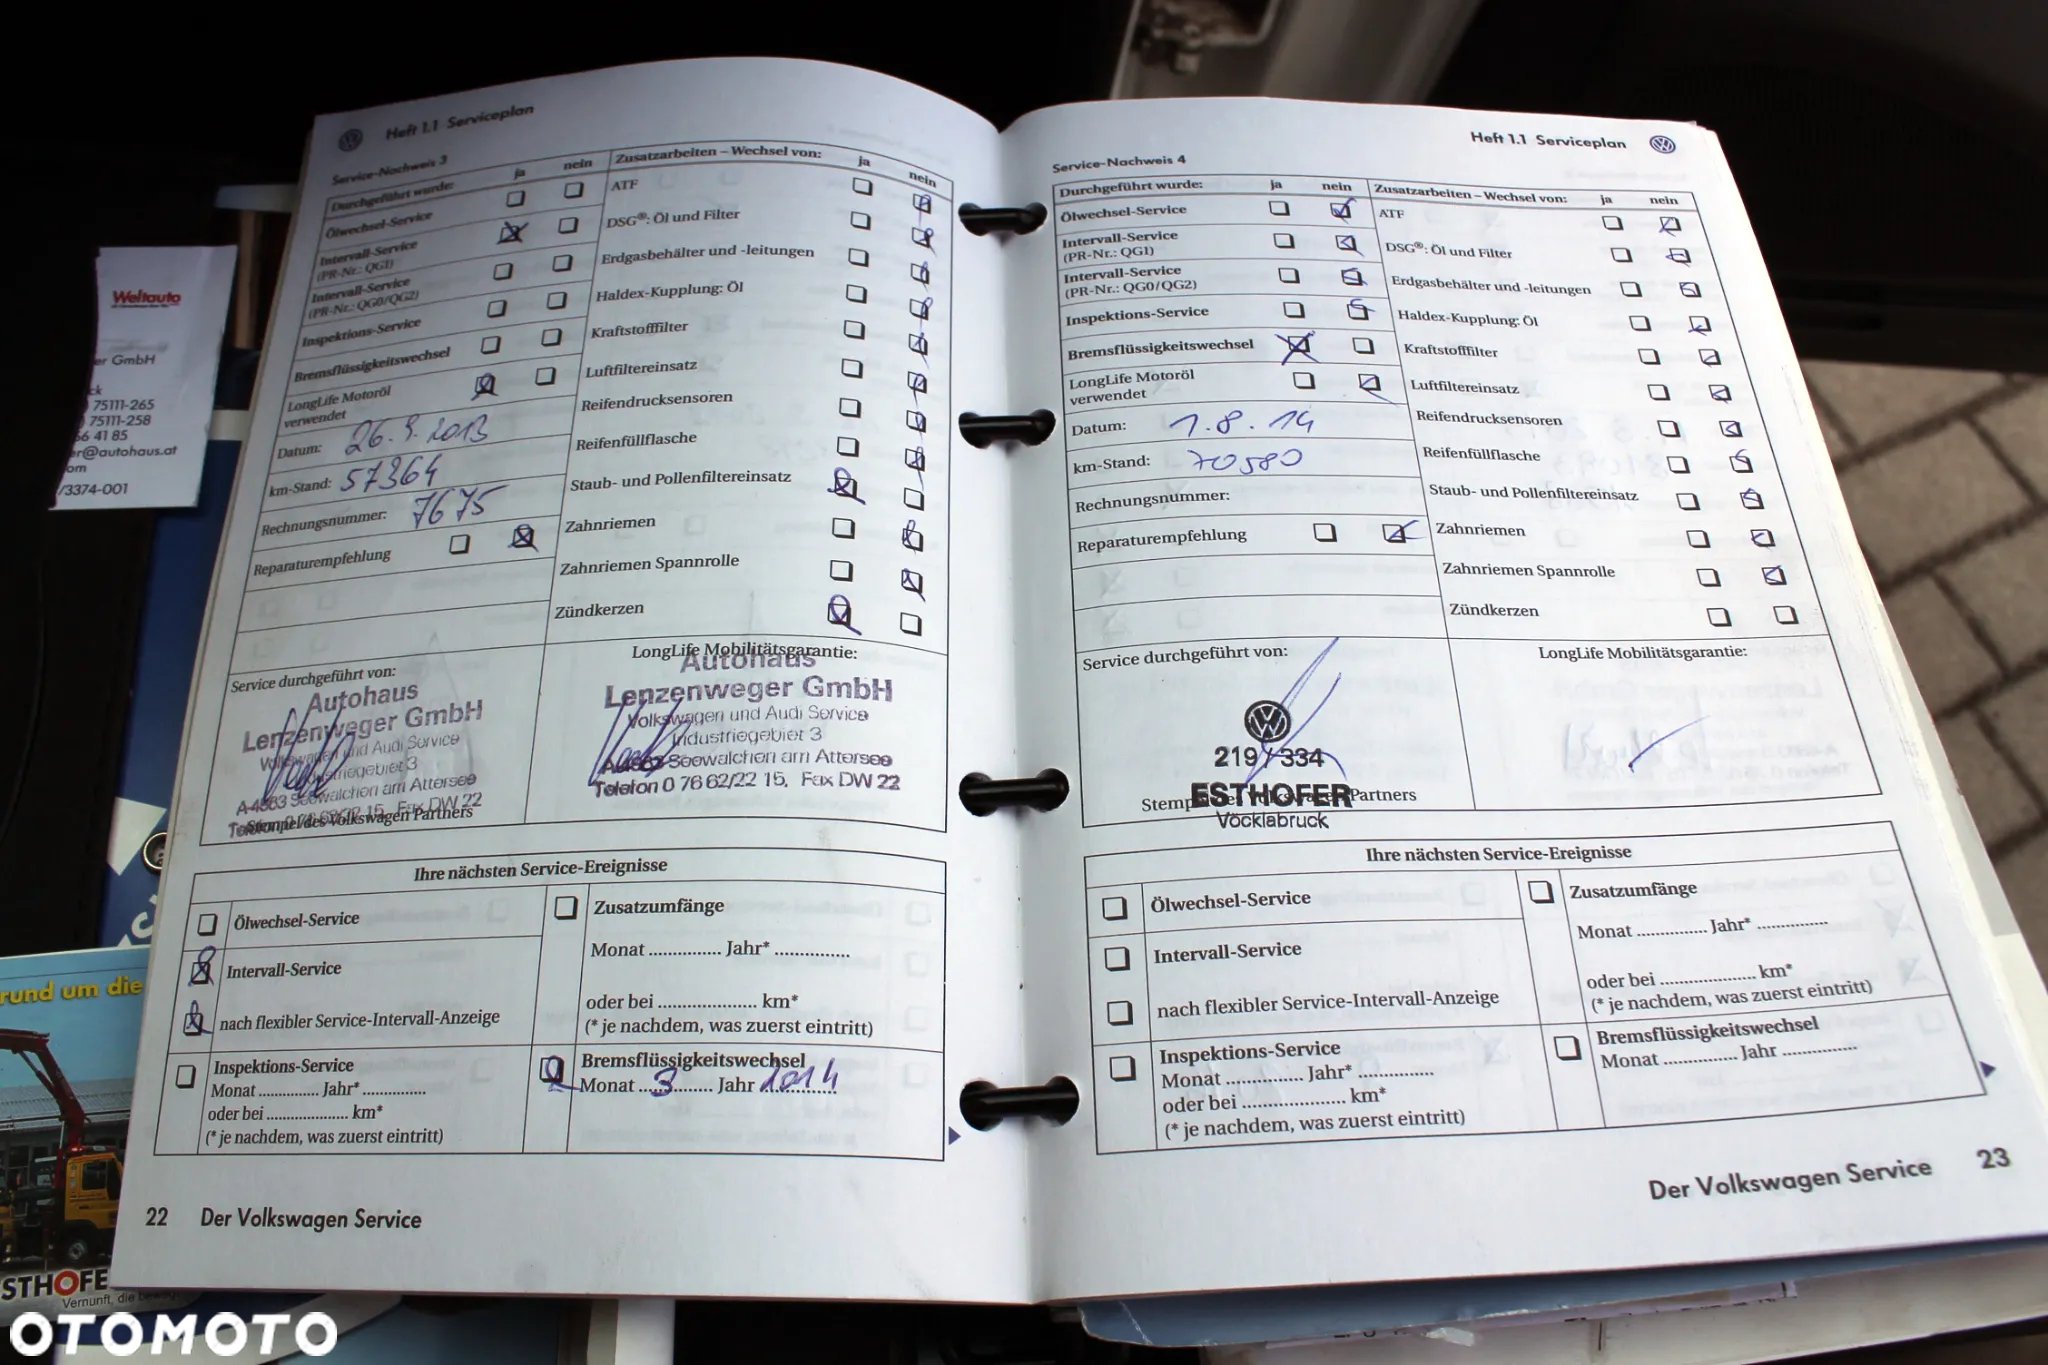 Heft 1.1 Serviceplan
Service-Nachweis 3
Durchgeführt wurde: ja nein
Ölwechsel-Service
Intervall-Service
(PR-Nr.: QG1)
Intervall-Service
(PR-Nr.: QG0/QG2)
Inspektions-Service
Bremsflüssigkeitswechsel
LongLife Motoröl
verwendet
Datum: 26.9.2013
km-Stand: 57364
Rechnungsnummer: 7675
Reparaturempfehlung
Zusatzarbeiten – Wechsel von: ja nein
ATF
DSG®: Öl und Filter
Erdgasbehälter und -leitungen
Haldex-Kupplung: Öl
Kraftstofffilter
Luftfiltereinsatz
Reifendrucksensoren
Reifenfüllflasche
Staub- und Pollenfiltereinsatz
Zahnriemen
Zahnriemen Spannrolle
Zündkerzen
Service durchgeführt von:
Autohaus
Lenzenweger GmbH
Volkswagen und Audi Service
Industriegebiet 3
A-4863 Seewalchen am Attersee
Telefon 0 76 62/22 15, Fax DW 22
Stempel des Volkswagen Partners
LongLife Mobilitätsgarantie:
Autohaus
Lenzenweger GmbH
Volkswagen und Audi Service
Industriegebiet 3
A-4863 Seewalchen am Attersee
Telefon 0 76 62/22 15, Fax DW 22
Ihre nächsten Service-Ereignisse
Ölwechsel-Service
Intervall-Service
nach flexibler Service-Intervall-Anzeige
Inspektions-Service
Monat .............. Jahr* ..............
oder bei .................... km*
(* je nachdem, was zuerst eintritt)
Zusatzumfänge
Monat .............. Jahr* ...............
oder bei .................... km*
(* je nachdem, was zuerst eintritt)
Bremsflüssigkeitswechsel
Monat ...3....... Jahr 2014
22 Der Volkswagen Service
Heft 1.1 Serviceplan
Service-Nachweis 4
Durchgeführt wurde: ja nein
Ölwechsel-Service
Intervall-Service
(PR-Nr.: QG1)
Intervall-Service
(PR-Nr.: QG0/QG2)
Inspektions-Service
Bremsflüssigkeitswechsel
LongLife Motoröl
verwendet
Datum: 1.8.14
km-Stand: 70580
Rechnungsnummer:
Reparaturempfehlung
Zusatzarbeiten – Wechsel von: ja nein
ATF
DSG®: Öl und Filter
Erdgasbehälter und -leitungen
Haldex-Kupplung: Öl
Kraftstofffilter
Luftfiltereinsatz
Reifendrucksensoren
Reifenfüllflasche
Staub- und Pollenfiltereinsatz
Zahnriemen
Zahnriemen Spannrolle
Zündkerzen
Service durchgeführt von:
219 / 334
ESTHOFER
Vöcklabruck
Stempel des Volkswagen Partners
LongLife Mobilitätsgarantie:
Ihre nächsten Service-Ereignisse
Ölwechsel-Service
Intervall-Service
nach flexibler Service-Intervall-Anzeige
Inspektions-Service
Monat .............. Jahr* ..............
oder bei .................... km*
(* je nachdem, was zuerst eintritt)
Zusatzumfänge
Monat .............. Jahr* ..............
oder bei .................... km*
(* je nachdem, was zuerst eintritt)
Bremsflüssigkeitswechsel
Monat .............. Jahr ..............
Der Volkswagen Service 23
Weltauto
er GmbH
ck
75111-265
75111-258
66 41 85
er@autohaus.at
om
/3374-001
rund um die
STHOFE
Vernunft, die beweg
OTOMOTO